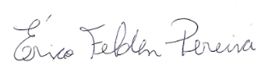 Érico Felden Pereira